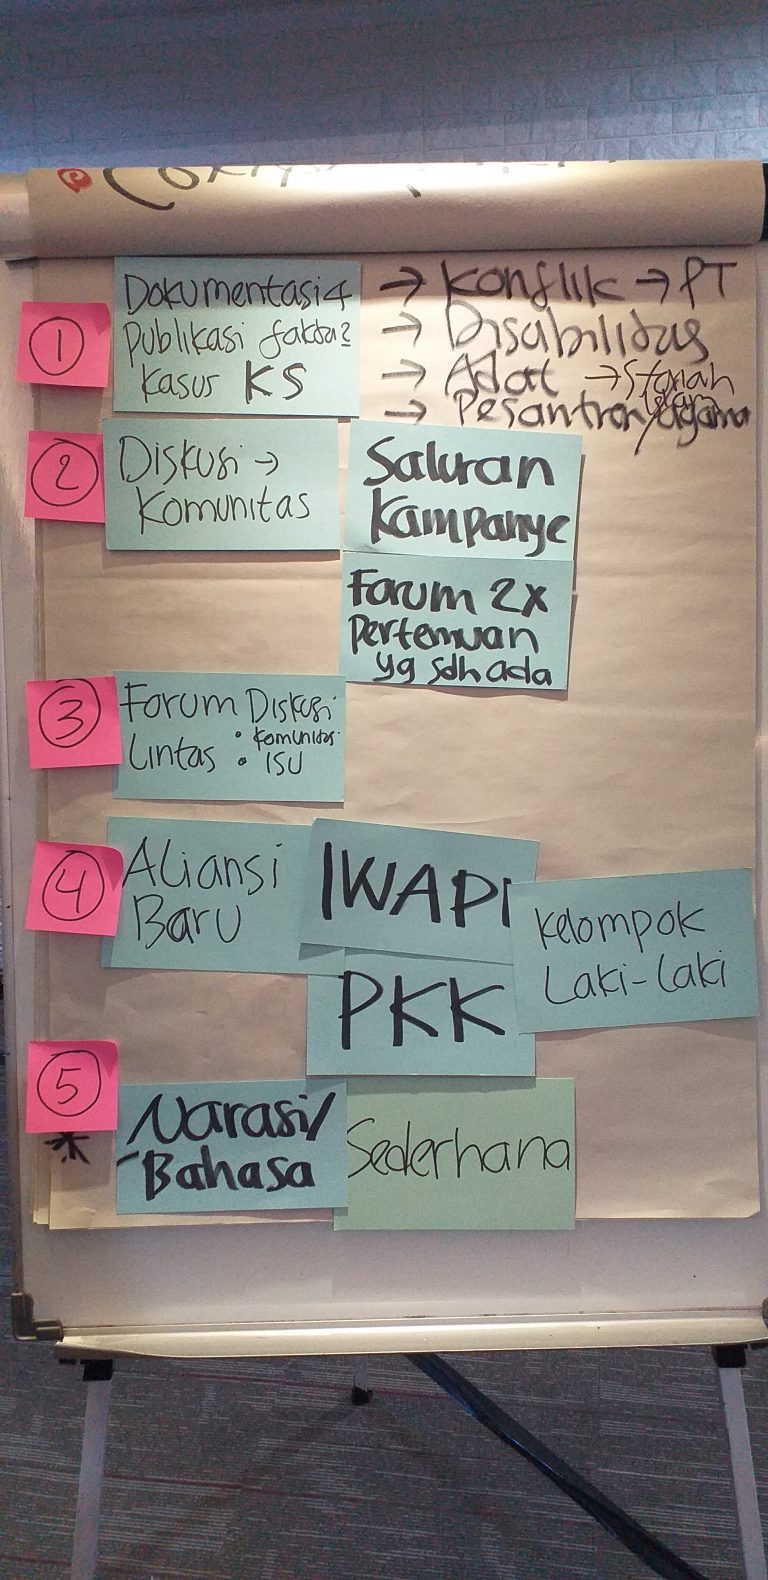 1
Dokumentasi &
Publikasi fakta2
Kasus KS
→ Konflik → PT
→ Disabilitas
→ Adat →
→ Pesantren/agama
2
Diskusi →
Komunitas
Saluran
Kampanye
Forum 2x
Pertemuan
yg sdh ada
3
Forum Diskusi
Lintas • Komunitas
• ISU
4
Aliansi
Baru
IWAPI
PKK
Kelompok
Laki-Laki
5
*
Narasi/
Bahasa
Sederhana